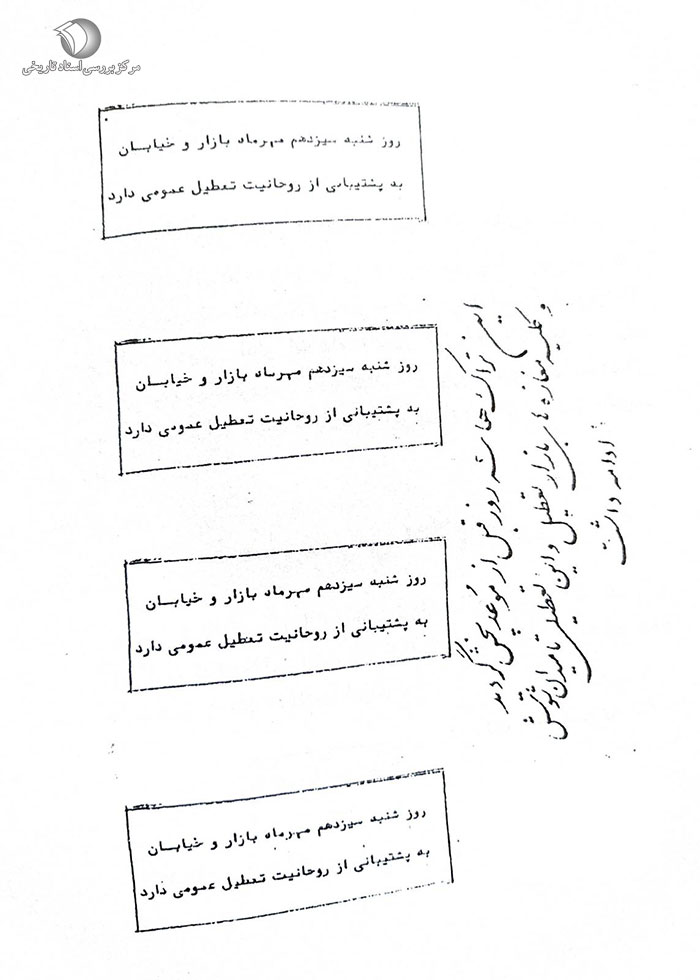 مرکز بررسی اسناد تاریخی
روز شنبه سیزدهم مهرماه بازار و خیابان
به پشتیبانی از روحانیت تعطیل عمومی دارد
روز شنبه سیزدهم مهرماه بازار و خیابان
به پشتیبانی از روحانیت تعطیل عمومی دارد
روز شنبه سیزدهم مهرماه بازار و خیابان
به پشتیبانی از روحانیت تعطیل عمومی دارد
روز شنبه سیزدهم مهرماه بازار و خیابان
به پشتیبانی از روحانیت تعطیل عمومی دارد
این تراکت‌ها سه روز قبل از موعد پخش گردید
و کلیه مغازه‌های بازار تعطیل و این تعطیلی تا میدان
ادامه داشت